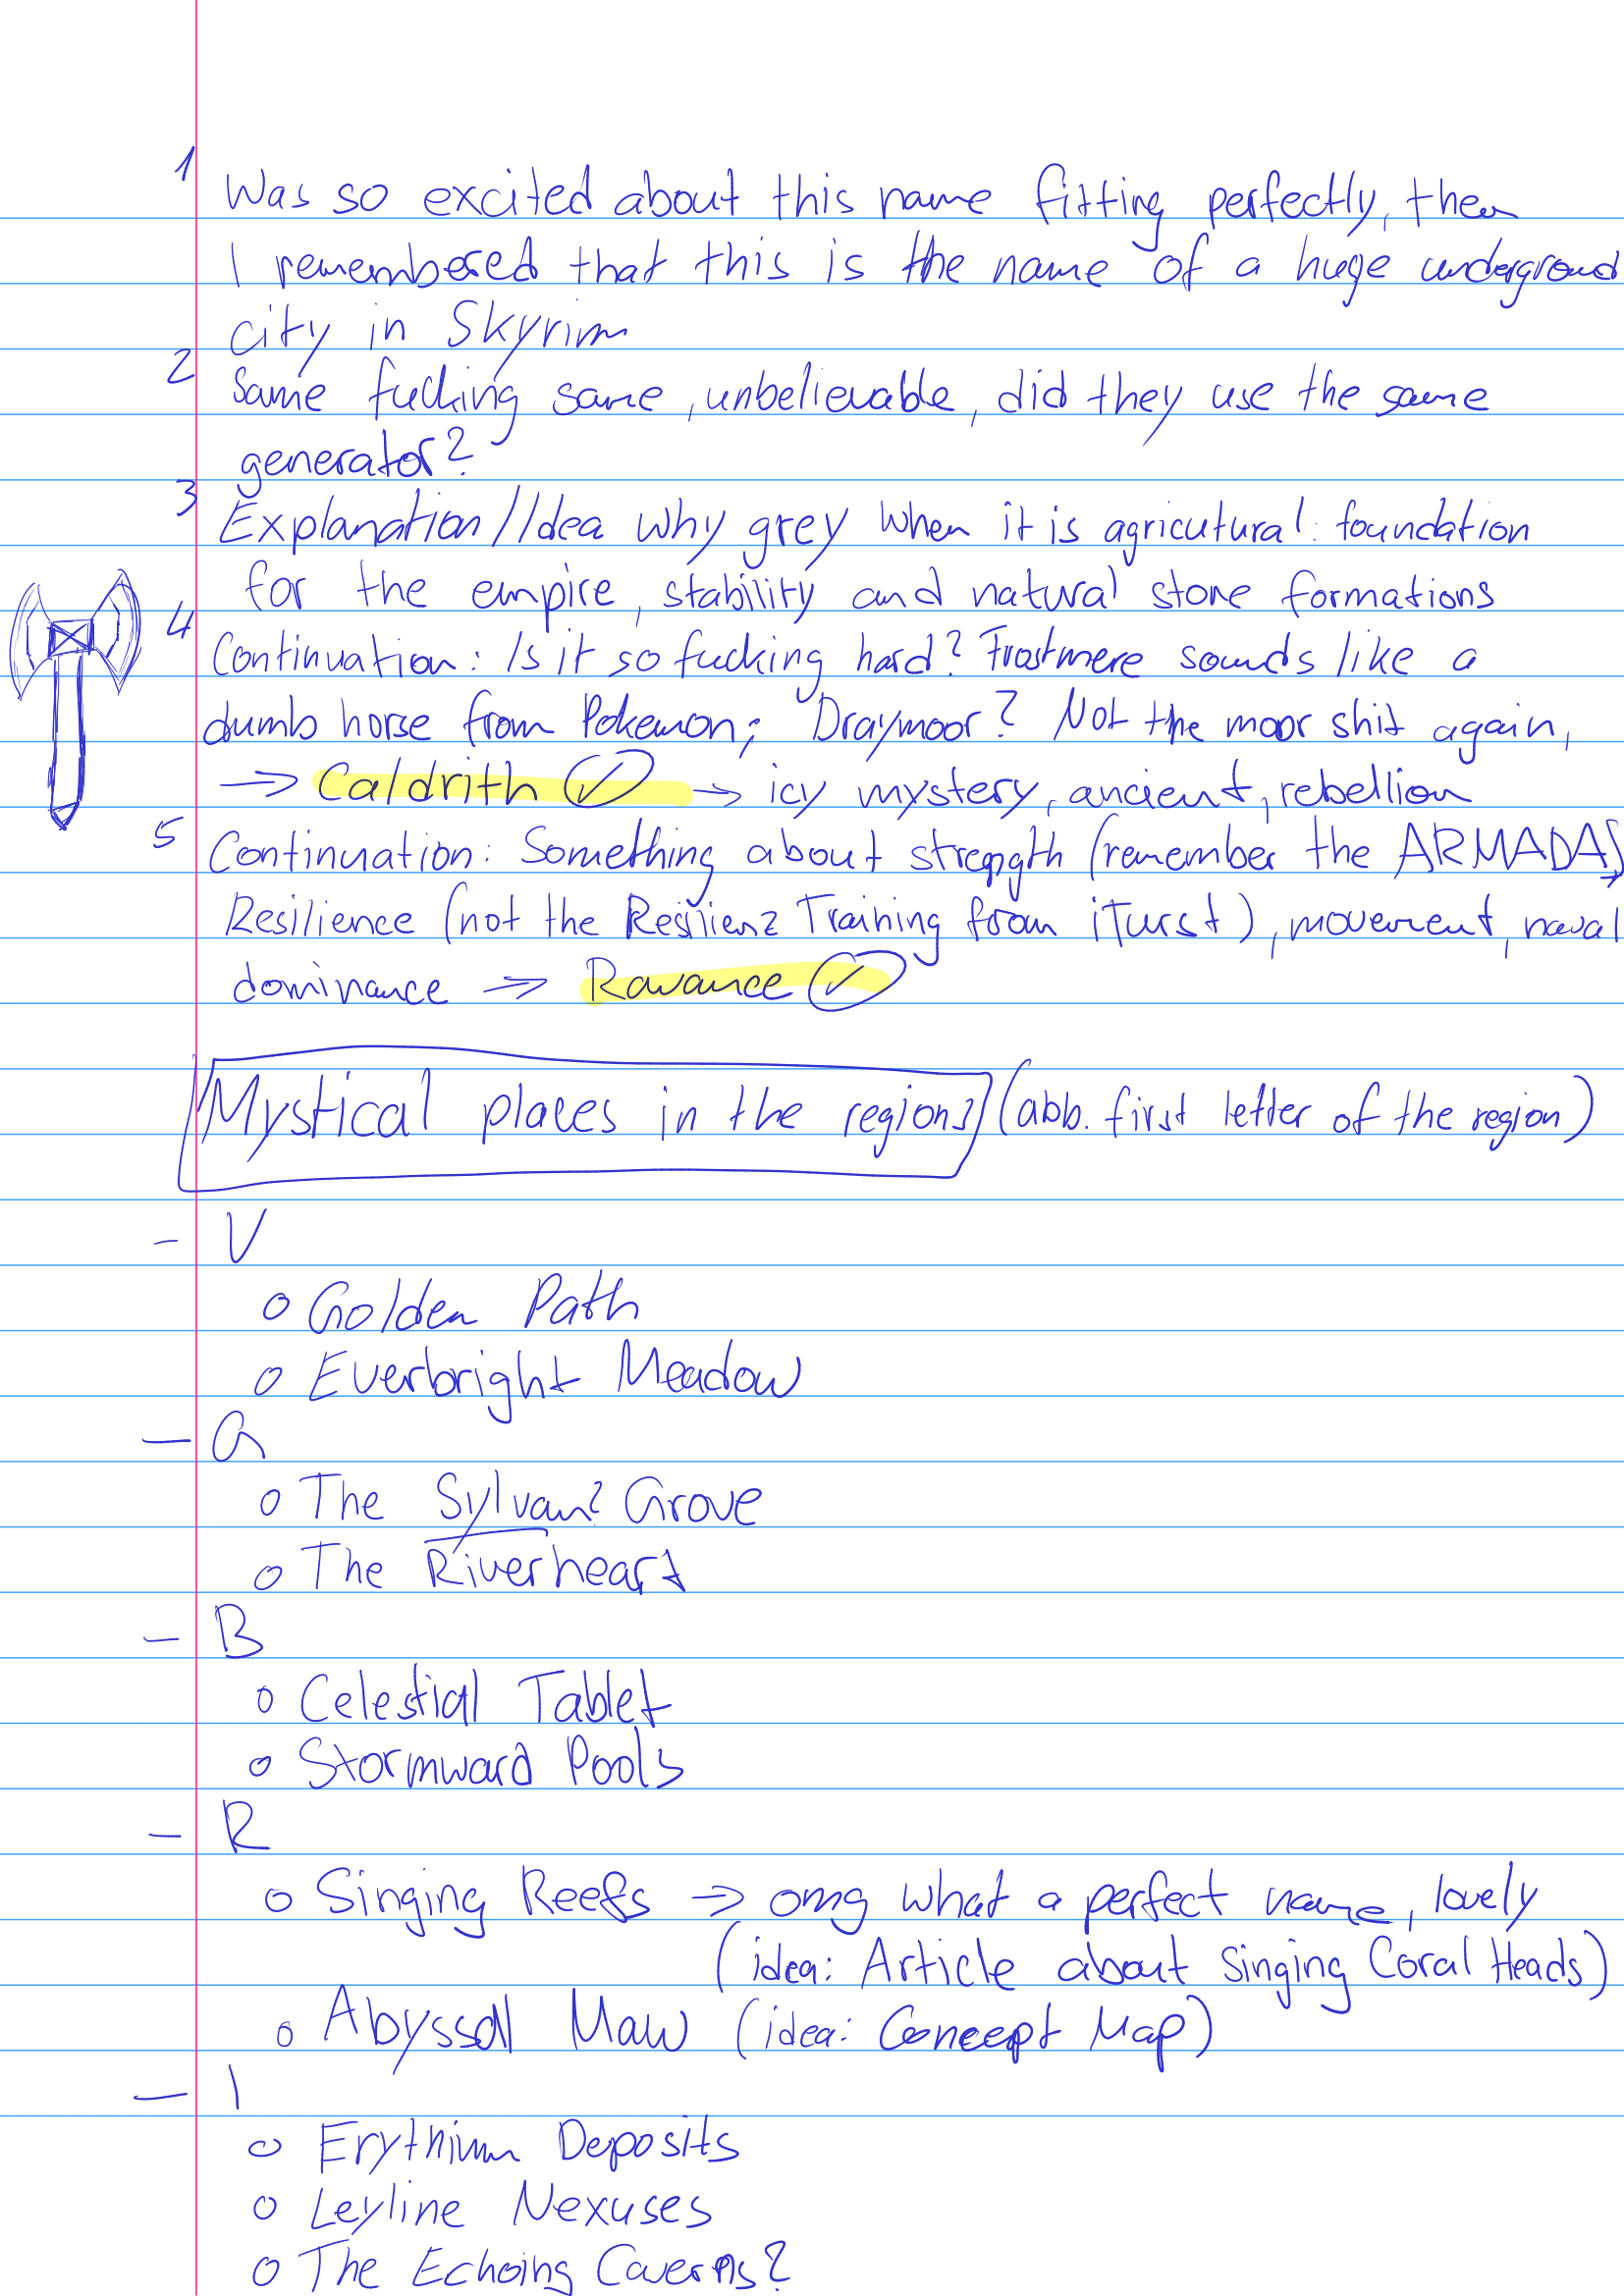 1 Was so excited about this name fitting perfectly, then
I remembered that this is the name of a huge underground
city in Skyrim
2 Same fucking same, unbelievable, did they use the same
generator?
3 Explanation/Idea why grey when it is agricutural: foundation
for the empire, stability and natural stone formations
4 Continuation: Is it so fucking hard? Frostmere sounds like a
dumb horse from Pokemon; Draymoor? Not the moor shit again,
→ Caldrith ✓ → icy mystery, ancient, rebellion
5 Continuation: Something about strength (remember the ARMADAS)
Resilience (not the Resilienz Training from iTurst), movement, naval
dominance → Ravance ✓
Mystical places in the regions (abb. first letter of the region)
- V
o Golden Path
o Everbright Meadow
- G
o The Sylvan? Grove
o The Riverheart
- B
o Celestial Tablet
o Stormward Pools
- R
o Singing Reefs → omg what a perfect name, lovely
(idea: Article about Singing Coral Heads)
o Abyssal Maw (idea: Concept Map)
- I
o Erythium Deposits
o Leyline Nexuses
o The Echoing Caverns?